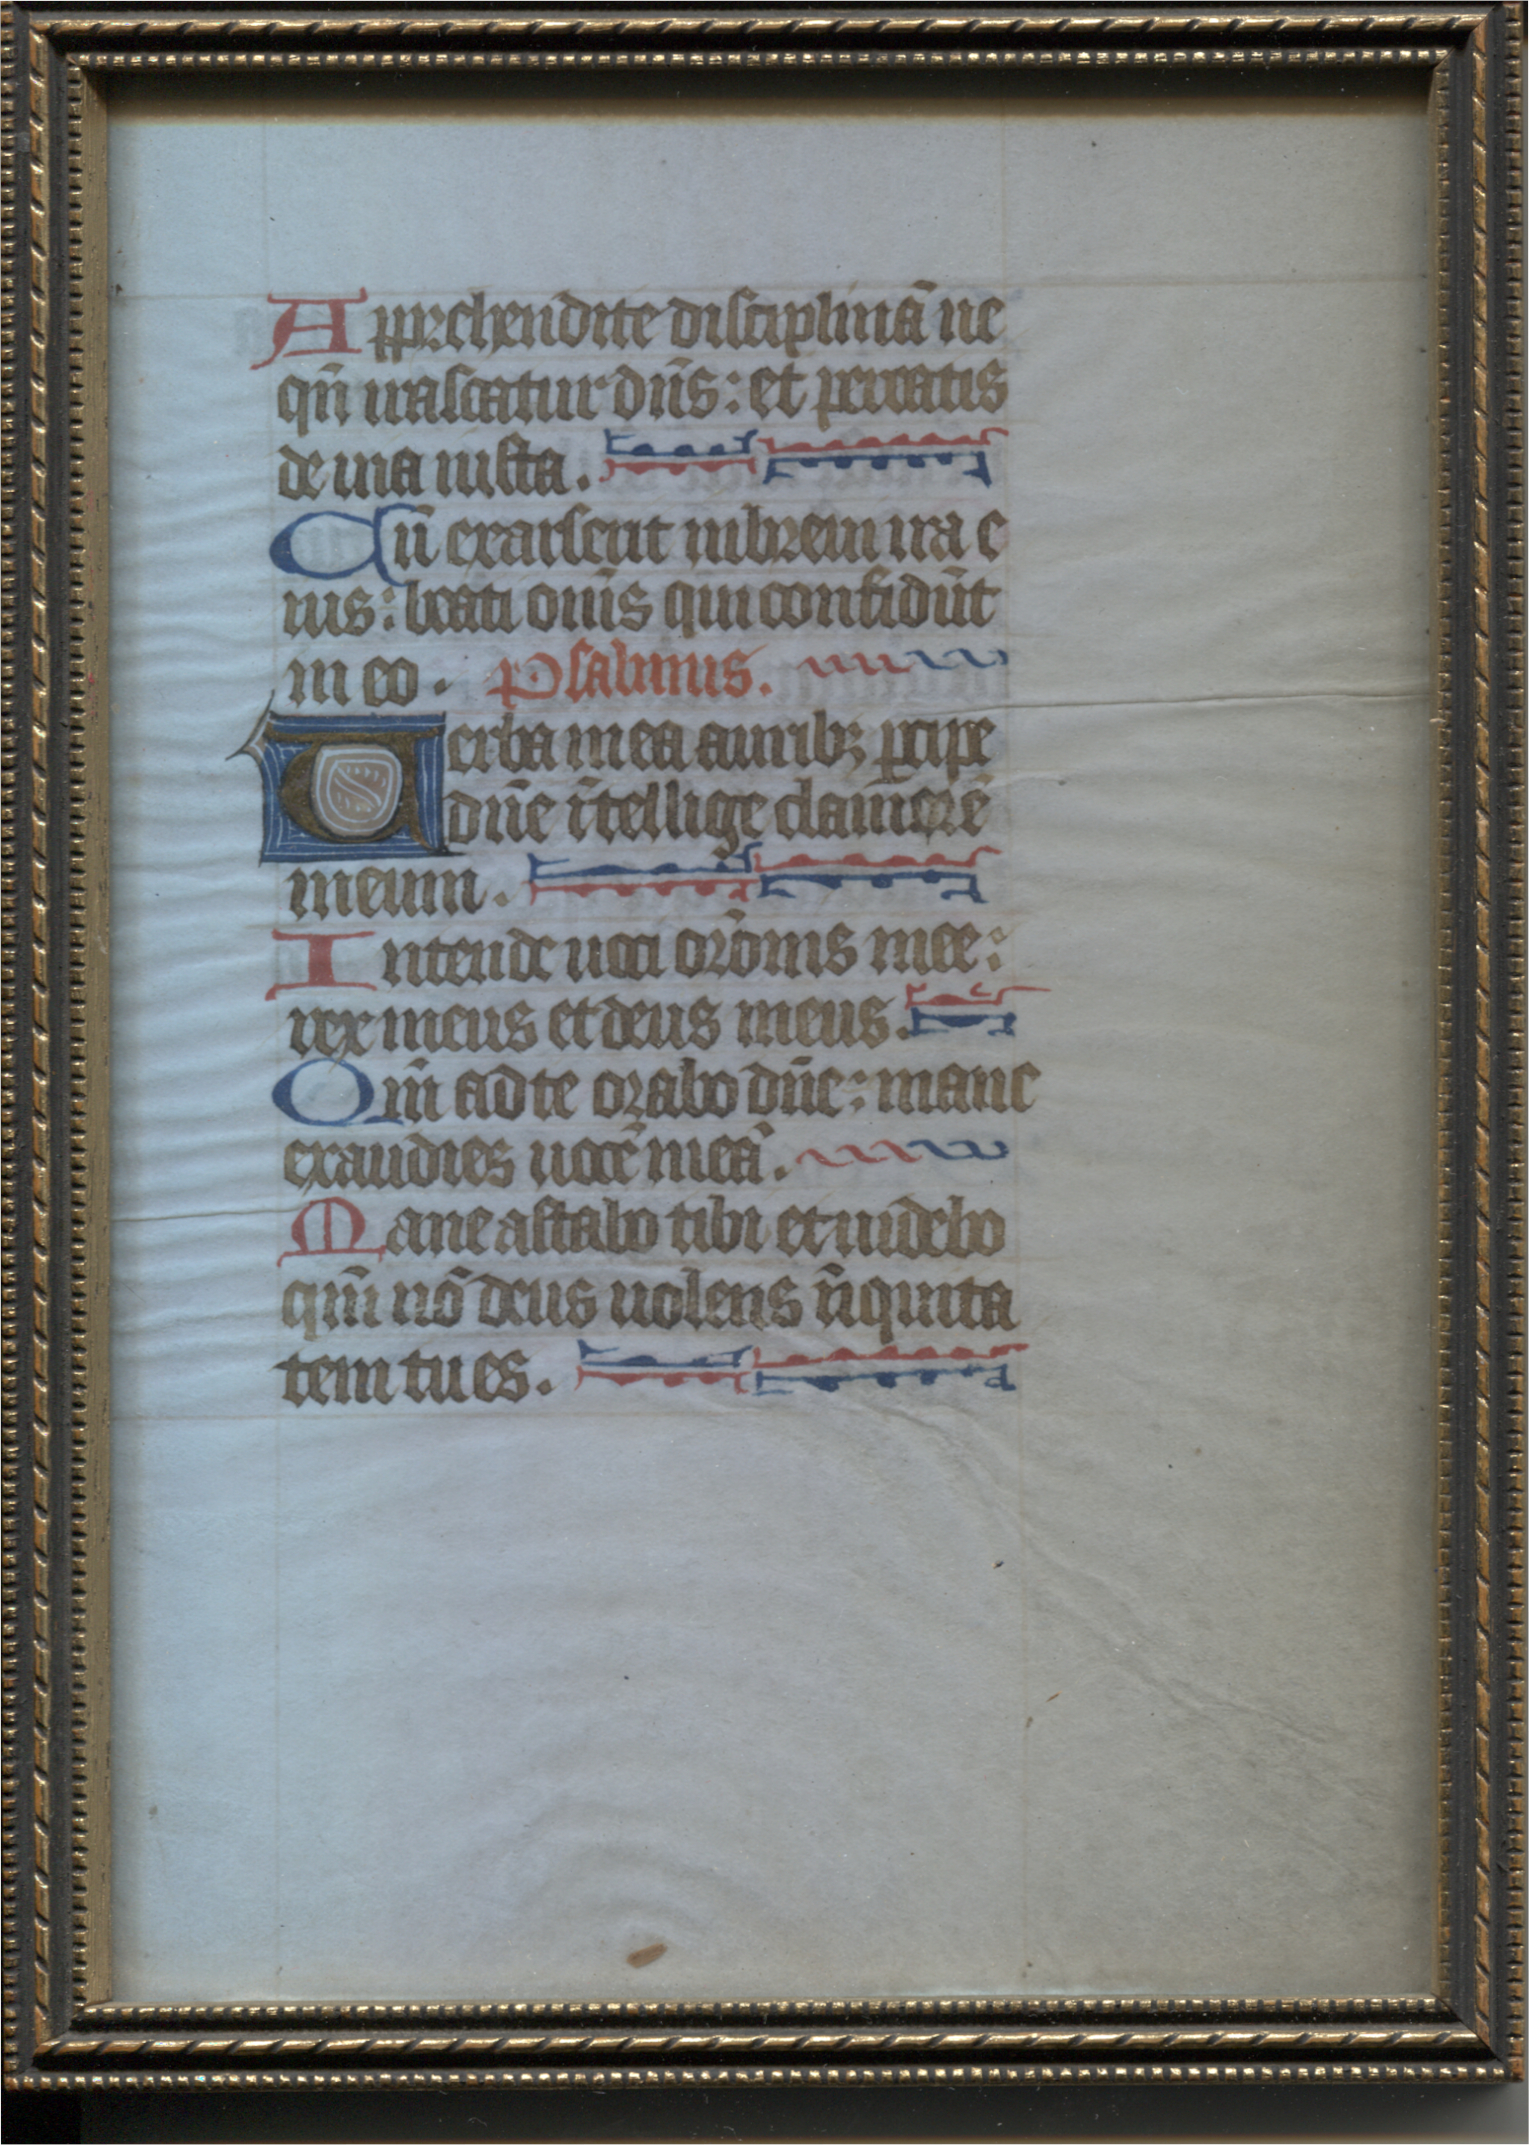 Apprehendite disciplinā ne
qn̄ irascatur dn̄s: et pereatis
de uia iusta.
Cū exarserit inbreui ira e
ius: beati om̄s qui confidūt
in eo. Psalmus.
Uerba mea aurib; ꝑcipe
dn̄e ītellige clamorē
meum.
Intende uoci orōnis mee:
rex meus et deus meus.
Qm̄ ad te orabo dn̄e: mane
exaudies uocē meā.
Mane astabo tibi et uidebo
qm̄ nō deus uolens īiquita
tem tu es.